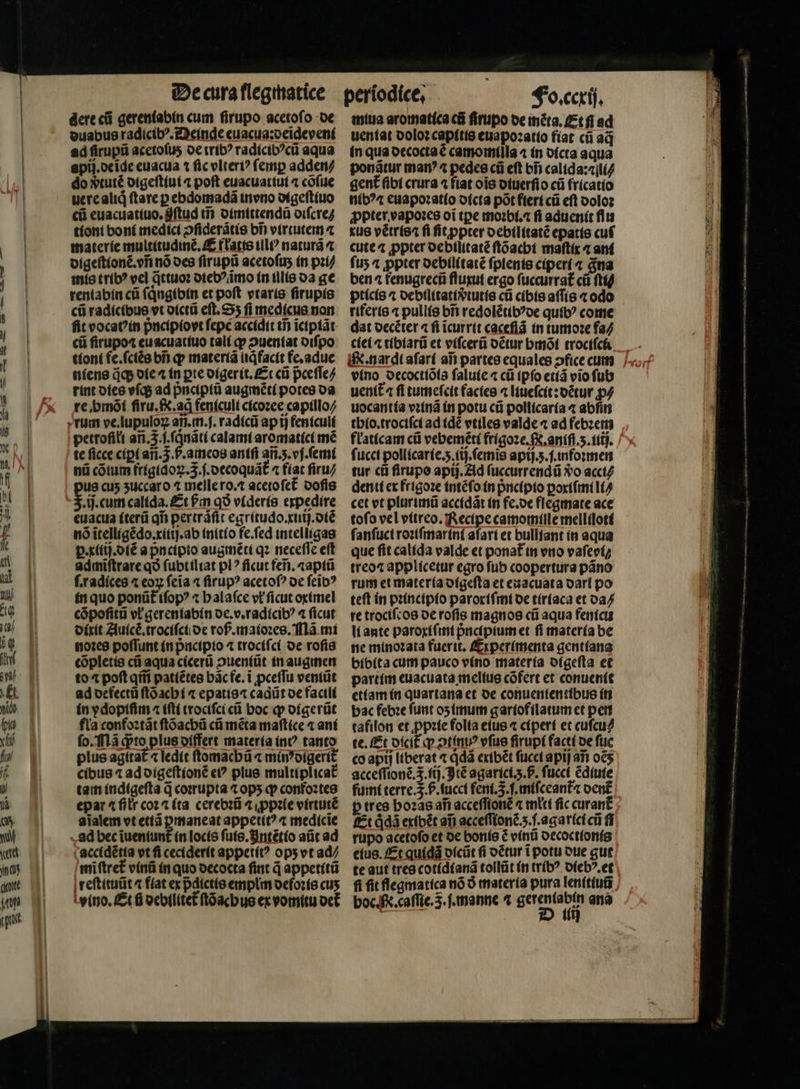 De cura flegmatice
dere cũ gereniabin cum sirupo acetoso de
duabus radicibꝰ. Deinde euacua: deide veni
ad sirupũ acetosuʒ de tribꝰ radicibꝰ cũ aqua
apij. deide euacua ⁊ sic vlteriꝰ semp adden⸗
do ꝟtutẽ digestiui ⁊ post euacuatiui ⁊ cõsue
uere aliq̃ stare ꝑ ebdomadã in vno digestiuo
cũ euacuatiuo. Istud tñ dimittendũ discre⸗
tioni boni medici ↄsiderãtis bñ virtutem ⁊
materie multitudinẽ. Et flatis illiꝰ naturã ⁊
digestionẽ. vñ nõ des sirupũ acetosuʒ in pri⸗
mis tribꝰ vel q̃ttuor diebꝰ. imo in illis da ge
reniabin cũ sq̃ngibin et post vtaris sirupis
cũ radicibus vt dictũ est. Sʒ si medicus non
fit vocatꝰ in pͥncipio vt sepe accidit tñ icipiãt
cũ sirupo ⁊ euacuatiuo tali ꝙ ↄueniat dispo
tioni fe. sciẽs bñ ꝙ materiã liq̃facit fe. adue
niens q̃ꝗ die ⁊ in pte digerit. Et cũ ꝓcesse⸗
rint dies vsꝗ ad pͥncipiũ augmẽti potes da
re. hmõi siru. ℞. aq̃ feniculi cicoree capillo⸗
rum ve. lupuloꝝ añ. m. ſ. radicũ ap ij feniculi
petrosili añ. ℥. ſ. sq̃nãti calami aromatici mẽ
te sicce cipi añ. ℥. β. ameos anisi añ. ʒ. vſ. semi
nũ cõium frigidoꝝ. ℥. ſ. decoquãt̃ ⁊ fiat siru⸗
pus cuʒ zuccaro ⁊ melle ro. ⁊ acetoset̃ dosis
℥. ij. cum calida. Et ẜm qđ videris expedire
euacua iterũ qñ pertrãsit egritudo. xiiij. diẽ
nõ itelligẽdo. xiiij. ab initio fe. sed intelligas
ꝑ. xiiij. diẽ a pͥncipio augmẽti qꝛ necesse est
admĩstrare qđ subtiliat plꝰ sicut señ. ⁊ apiũ
ſ. radices ⁊ eoꝝ seĩa ⁊ sirupꝰ acetosꝰ de seĩbꝰ
in quo ponũt̃ isopꝰ ⁊ balasce vł sicut oximel
cõpositũ vł gereniabin de. v. radicibꝰ ⁊ sicut
dixit Auicẽ. trocisci de ros̃. maiores. Nã mi
nores possunt in pͥncipio ⁊ trocisci de rosis
cõpletis cũ aqua cicerũ ↄueniũt in augmen
to ⁊ post qm̃ patiẽtes hãc fe. i ꝓcessu veniũt
ad defectũ stõachi ⁊ epatis ⁊ cadũt de facili
in ydopisim ⁊ isti trocisci cũ hoc ꝙ digerũt
fla confortãt stõachũ cũ mẽta mastice ⁊ ani
so. Nã q̃to plus differt materia intꝰ tanto
plus agitat̃ ⁊ ledit stomachũ ⁊ minꝰ digerit̃
cibus ⁊ ad digestionẽ eiꝰ plus multiplicat̃
tam indigesta q̃ corrupta ⁊ opʒ ꝙ confortes
epar ⁊ silr cor ⁊ ita cerebrũ ⁊ ꝓprie virtutẽ
aialem vt etiã ꝑmaneat appetitꝰ ⁊ medicie
ad hec iueniunt̃ in locis suis. Intẽtio aũt ad
accidẽtia vt si ceciderit appetitꝰ opʒ vt ad⸗
mĩstret̃ vinũ in quo decocta sint q̃ appetitũ
restituũt ⁊ fiat ex pͥdictis emplm defoꝛis cuʒ
vino. Et si debilitet̃ stõachus ex vomitu det̃
periodice. Fo. ccxij.
miua aromatica cũ sirupo de mẽta. Et si ad
ueniat dolor capitis euaporatio fiat cũ aq̃
in qua decocta ẽ camomilla ⁊ in dicta aqua
ponãtur manꝰ ⁊ pedes cũ est bñ calida: ⁊ li⸗
gent̃ sibi crura ⁊ fiat ois diuersio cũ fricatio
nibꝰ ⁊ euaporatio dicta põt fieri cũ est dolor
ꝓpter vapores oi tpe morbi. ⁊ si aduenit flu
xus vẽtris ⁊ si sit ꝓpter debilitatẽ epatis cuſ
cute ⁊ ꝓpter debilitatẽ stõachi mastix ⁊ ani
suʒ ⁊ ꝓpter debilitatẽ splenis ciperi ⁊ g̃na
ben ⁊ fenugrecũ fluxui ergo succurrat̃ cũ sti⸗
pticis ⁊ debilitati ꝟtutis cũ cibis assis ⁊ odo
riferis ⁊ pullis bñ redolẽtibꝰ de quibꝰ come
dat decẽter ⁊ si icurrit cacesiã in tumore fa⸗
ciei ⁊ tibiarũ et viscerũ dẽtur hmõi trocisci.
℞. nardi asari añ partes equales ↄfice cum
vino decoctiõis saluie ⁊ cũ ipso etiã vio sub
uenit̃ ⁊ si tumescit facies ⁊ liuescit: dẽtur ꝓ⸗
uocantia vrinã in potu cũ pollicaria ⁊ absin
thio. trocisci ad idẽ vtiles valde ⁊ ad febꝛem
flaticam cũ vehemẽti frigore. ℞. anisi. ʒ. iiij.
succi pollicarie. ʒ. iij. semis apij. ʒ. ſ. infoꝛmen
tur cũ sirupo apij. Ad succurrendũ ꝟo acci⸗
denti ex frigore intẽso in pͥncipio paroxismi li⸗
cet vt plurimũ accidãt in fe. de flegmate ace
toso vel vitreo. Recipe camomille melliloti
sansuci rosismarini asari et bulliant in aqua
que sit calida valde et ponat̃ in vno vase vi⸗
treo ⁊ applicetur egro sub coopertura pãno
rum et materia digesta et euacuata dari po
test in principio paroxismi de tiriaca et da⸗
re trociscos de rosis magnos cũ aqua fenicu
li ante paroxismi pͥncipium et si materia be
ne minorata fuerit. Experimenta gentiana
bibita cum pauco vino materia digesta et
partim euacuata melius cõfert et conuenit
etiam in quartana et de conuenientibus in
hac febre sunt oʒimum gariofilatum et pen
tafilon et ꝓprie folia eius ⁊ ciperi et cuscu⸗
te. Et dicit̃ ꝙ ↄtinuꝰ vsus sirupi facti de suc
co apij liberat ⁊ q̃dã exibẽt succi apij añ oẽʒ
accessionẽ. ℥. iij. Itẽ agarici. ʒ. β. succi ẽdiuie
fumi terre. ℥. β. succi feni. ℥. ſ. misceant̃ ⁊ dent̃
ꝑ tres horas añ accessionẽ ⁊ mlti sic curant̃
Et q̃dã exibẽt añ accessionẽ. ʒ. ſ. agarici cũ si
rupo acetoso et de bonis ẽ vinũ decoctionis
eius. Et quidã dicũt si dẽtur i potu due gut
te aut tres cotidianã tollũt in tribꝰ diebꝰ. et
si sit flegmatica nõ đ materia pura lenitiuũ
hoc. ℞. cassie. ℥. ſ. manne ⁊ gereniabin ana
D iiij